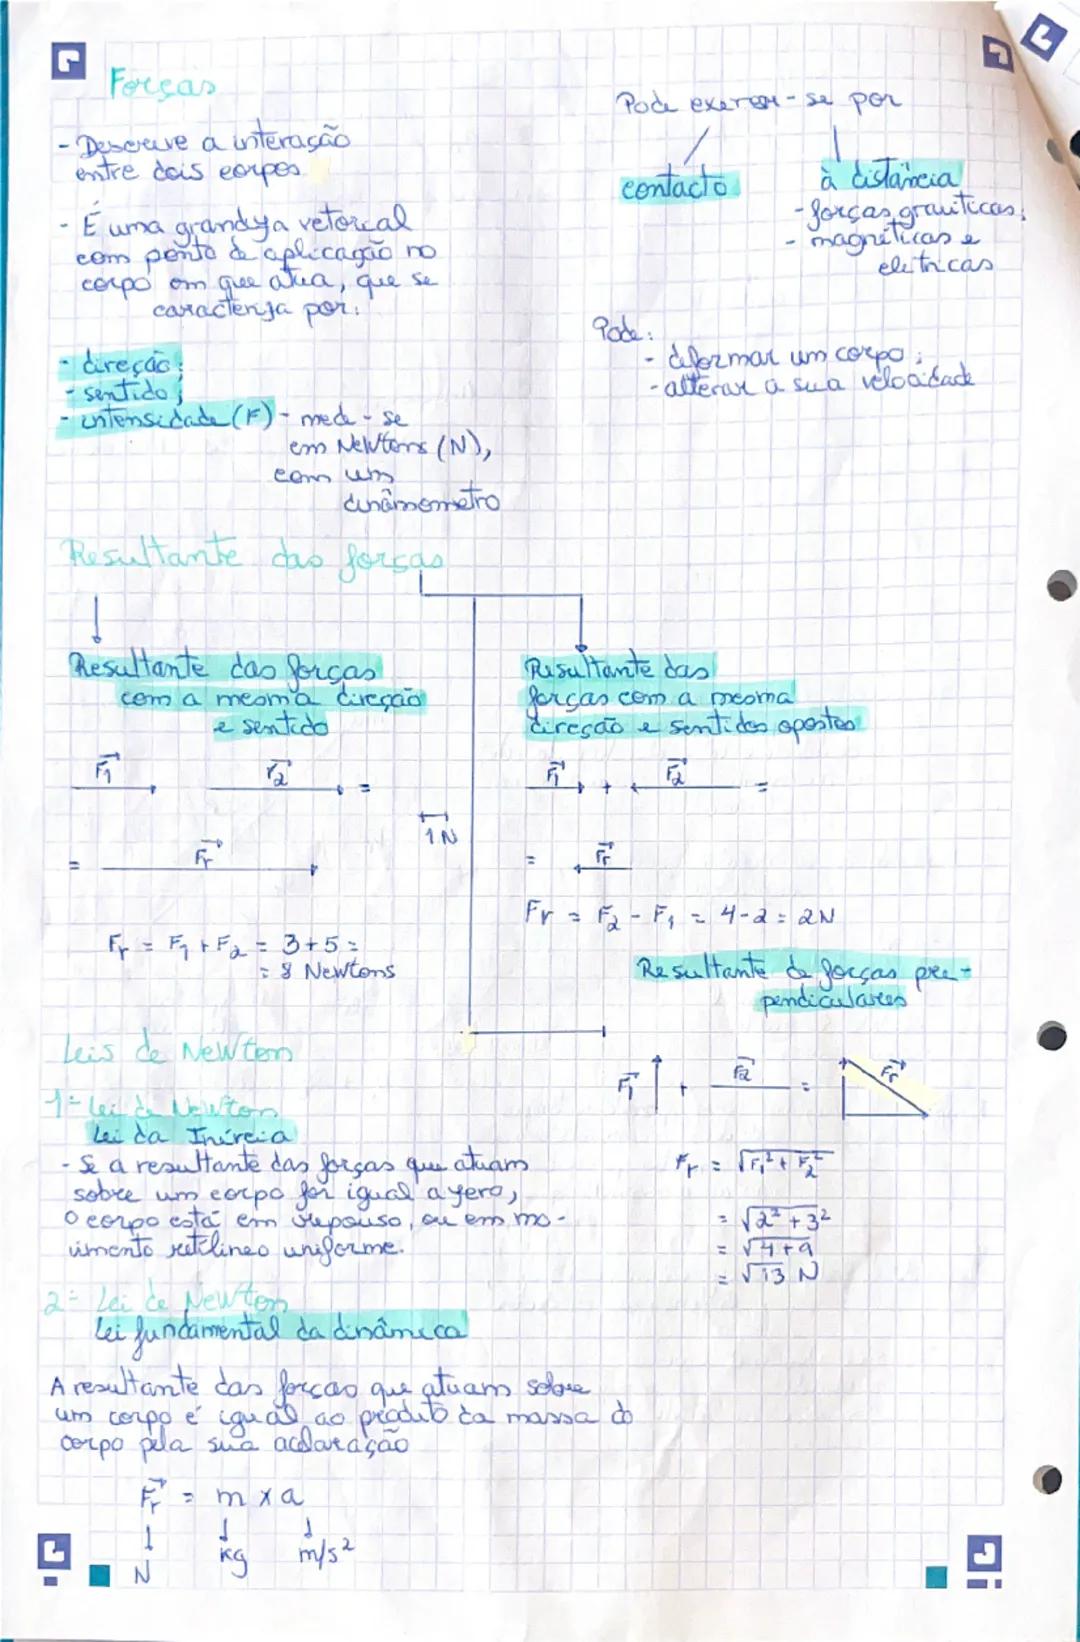 Forças
- Descreve a interação
entre dois corpos
- É uma grandeza vetorial
com ponto de aplicação no
corpo em que atua, que se
caracteriza por:
- direção;
- sentido;
- intensidade (F) - mede-se
em Newtons (N),
com um
dinâmometro
Pode exercer-se por
contacto
à distância
- forças gravíticas;
- magnéticas e
elétricas
Pode:
- deformar um corpo;
- alterar a sua velocidade
Resultante das forças
Resultante das forças
com a mesma direção
e sentido
F1 F2 =
= Fr
1N
Fr = F1 + F2 = 3+5 =
= 8 Newtons
Resultante das
forças com a mesma
direção e sentidos opostos
F1 + F2 =
= Fr
Fr = F2 - F1 = 4-2 = 2N
Resultante de forças pre-
pendiculares
F1 + F2 = Fr
Fr = √F1² + F2²
= √2² + 3²
= √4+9
= √13 N
Leis de Newton
1ª Lei de Newton
Lei da Inércia
- Se a resultante das forças que atuam
sobre um corpo for igual a zero,
o corpo está em repouso, ou em mo-
vimento retilíneo uniforme.
2ª Lei de Newton
Lei fundamental da dinâmica
A resultante das forças que atuam sobre
um corpo é igual ao produto da massa do
corpo pela sua aclaração
Fr = m x a
N kg m/s²